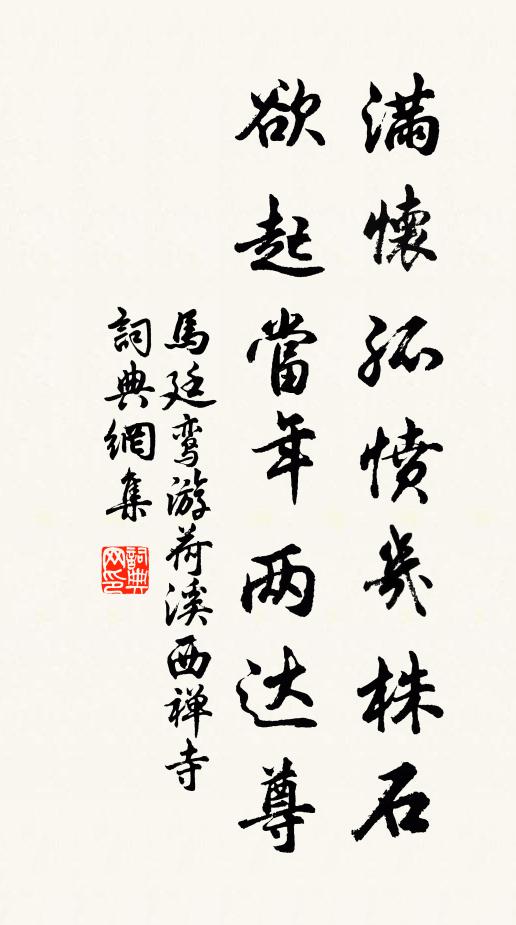 滿懷孤憤幾株石
欲起當年两达尊
馬廷鸾游荷溪西禅寺
詞典網集
詞典网印